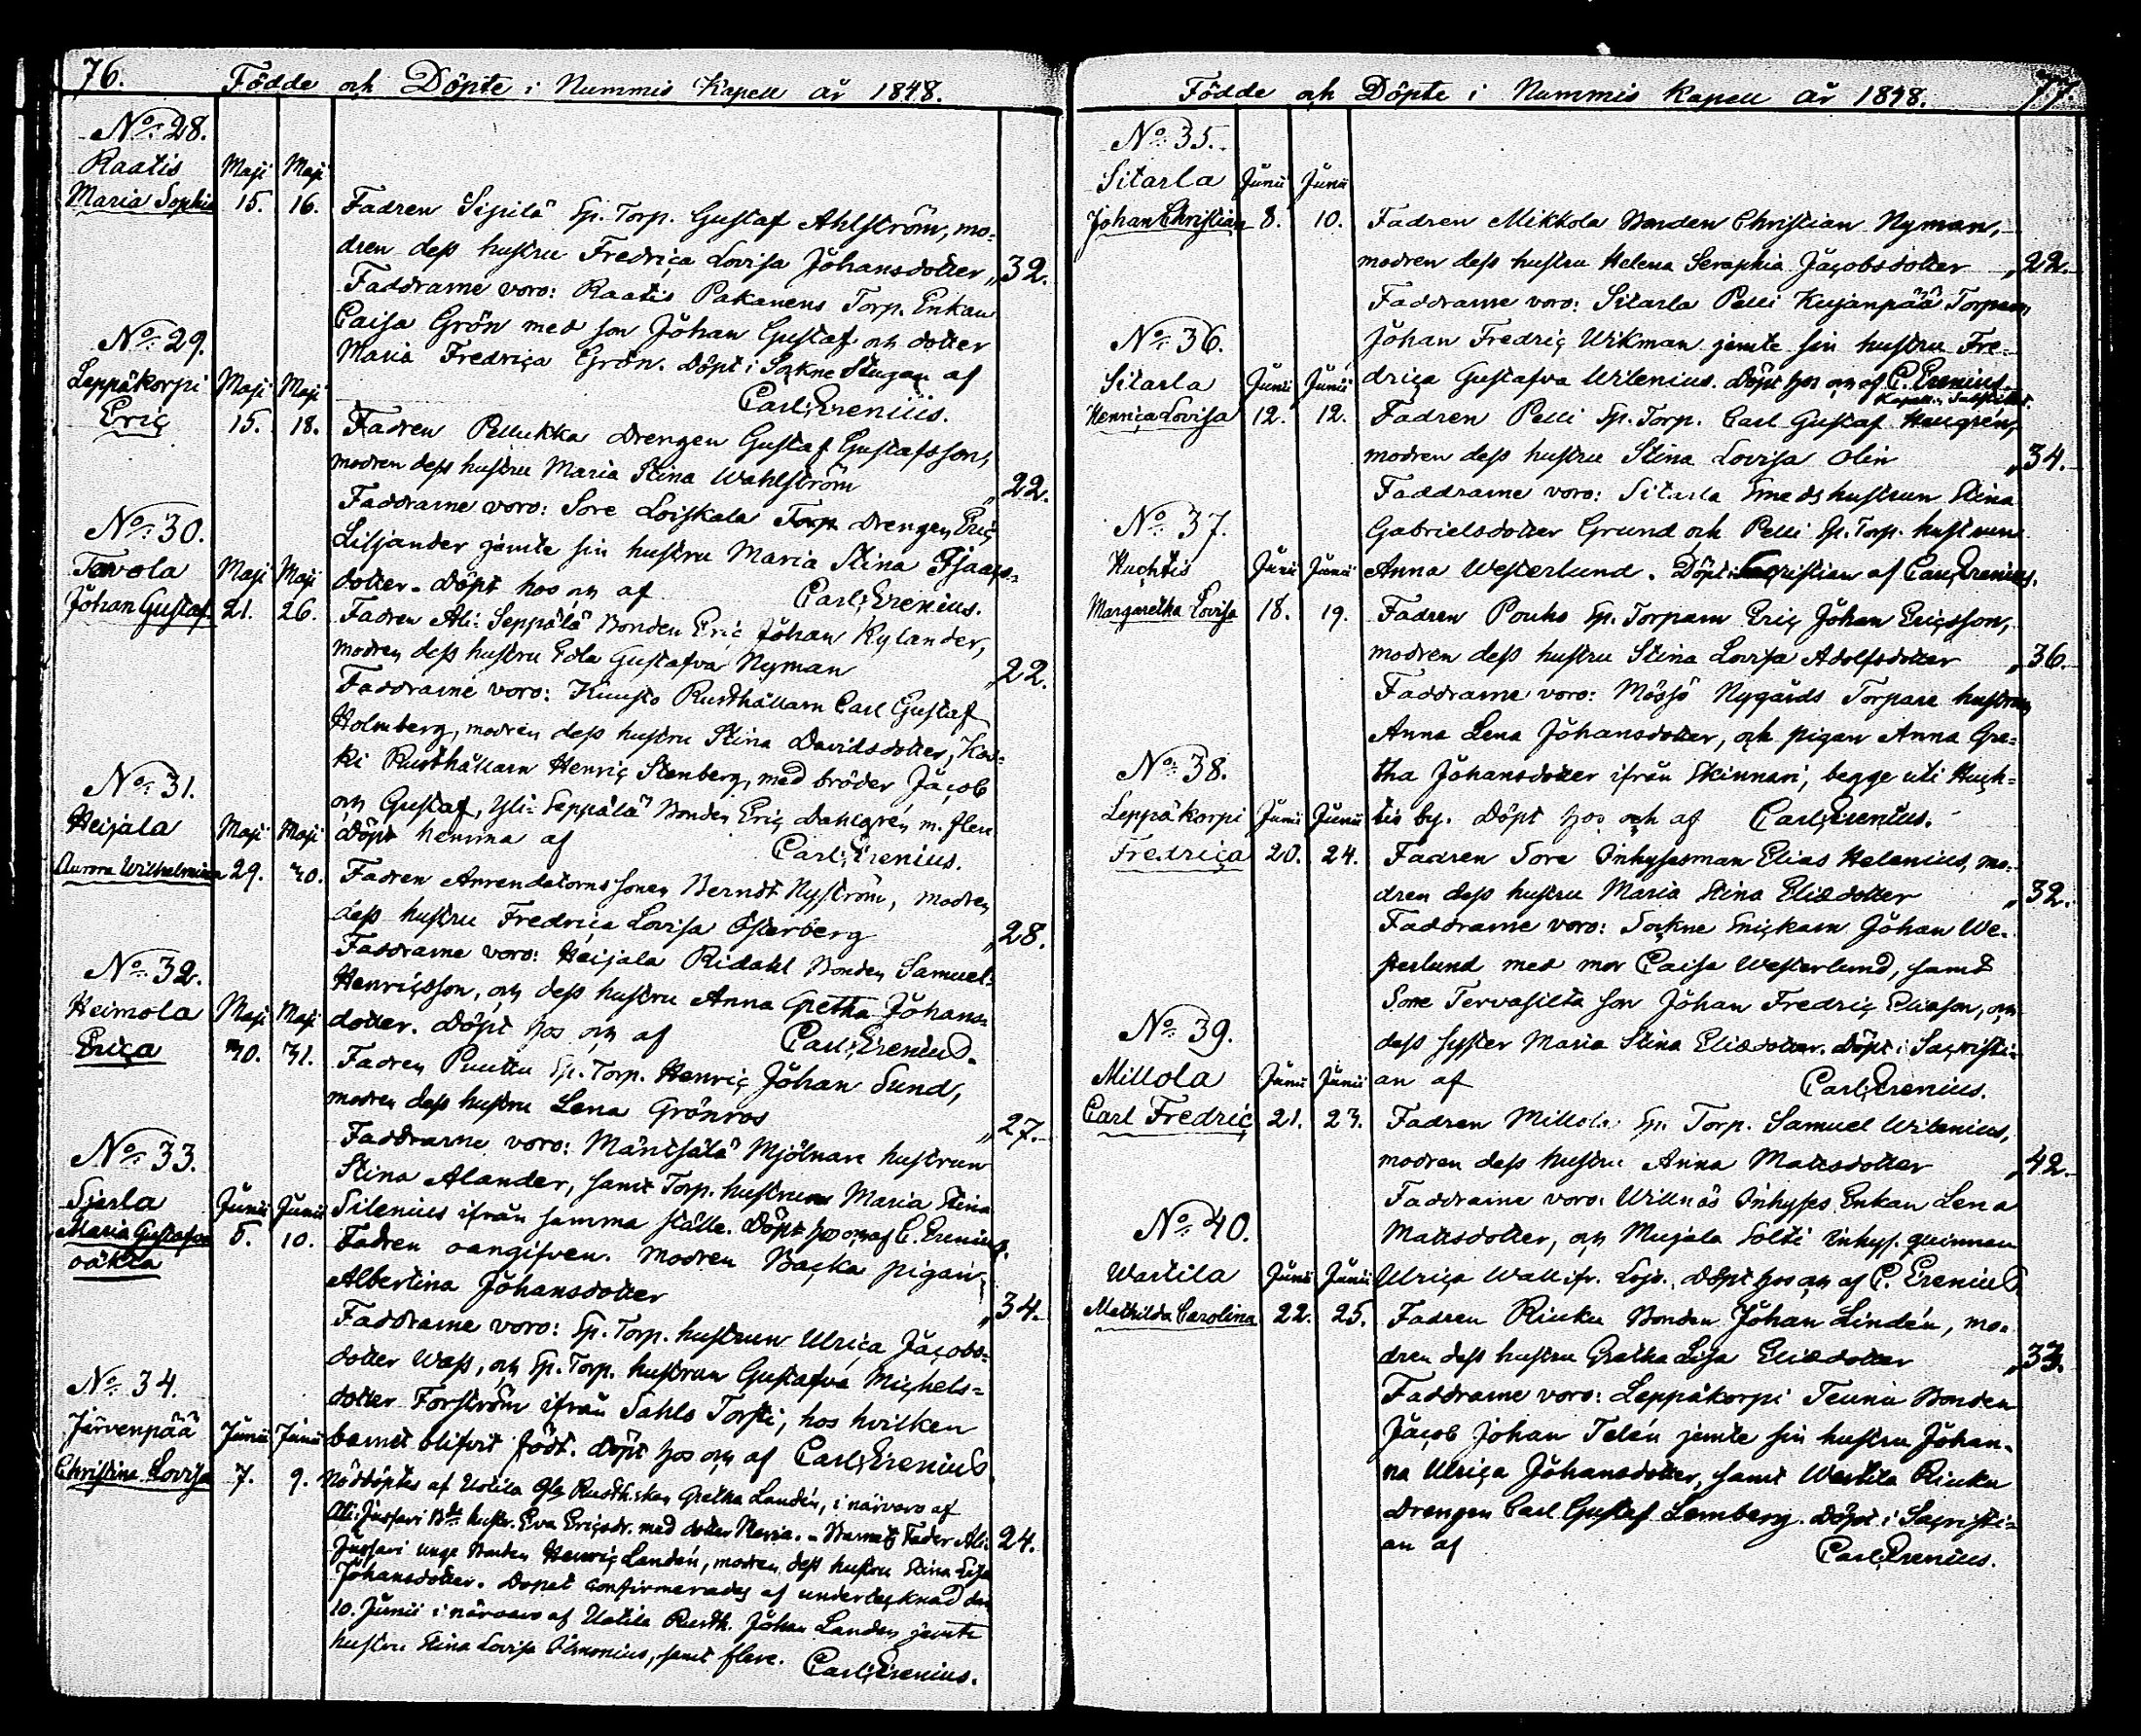 76.
Födde och Döpte i Nummis Kapell år 1848.
No. 28.
Raatis Maji Maji
Maria Sophia 15. 16. Fadren Sipilä Sp. Torp. Gustaf Ahlström, mo-
dren dess hustru Fredrica Lovisa Johansdotter „32.
Faddrarne voro: Raatis Pakanens Torp. Enkan
Caisa Grön med son Johan Gustaf och dotter
Maria Fredrica Grön. Döpt i Sockne Stugan af
Carl Erenius.
No. 29.
Leppäkorpi Maji Maji
Eric 15. 18. Fadren Pellukka Drengen Gustaf Gustafsson,
modren dess hustru Maria Stina Wahlström „22.
Faddrarne voro: Sore Loiskala Torp. Drengen Eric
Liljander jemte sin hustru Maria Stina
dotter. Döpt hos och af Carl Erenius.
No. 30.
Tavola Maji Maji
Johan Gustaf 21. 26. Fadren Ali-Seppälä Bonden Eric Johan Kylander,
modren dess hustru Edla Gustafva Nyman „22.
Faddrarne voro: Kuusto Rusthållarn Carl Gustaf
Holmberg, modren dess hustru Stina Davidsdotter, Kos-
ki Rusthållarn Henric Stenberg, med bröder Jacob
och Gustaf, Yli-Seppälä Bonden Eric Dahlgrén m. flere
Döpt hemma af Carl Erenius.
No. 31.
Heijala Maji Maji
Aurora Wilhelmina 29. 30. Fadren Arrendatorns sonen Berndt Nyström, modren
dess hustru Fredrica Lovisa Österberg „28.
Faddrarne voro: Heijala Ridahl Bonden Samuel
Henricsson, och dess hustru Anna Gretha Johans-
dotter. Döpt hos och af Carl Erenius.
No. 32.
Heimola Maji Maji
Erica 30. 31. Fadren Puuttu Sp. Torp. Henric Johan Sund,
modren dess hustru Lena Grönros „27.
Faddrarne voro: Mäntsälä Mjölnare hustrun
Stina Alander, samt Torp. hustrun Maria Stina
Silenius ifrån samma ställe. Döpt hos och af C. Erenius.
No. 33.
Sierla Junii Junii
Maria Gustafva 5. 10. Fadren oangifven. Modren Backa pigan
oäkta
Albertina Johansdotter „34.
Faddrarne voro: Sp. Torp. hustrun Ulrica Jacobs-
dotter Wass, och Sp. Torp. hustrun Gustafva Michels-
dotter Forström ifrån Sahls Torsti, hos hvilken
barnet blifvit födt. Döpt hos och af Carl Erenius
No. 34.
Järvenpää Junii Junii
Christina Lovisa 7. 9. Nöddöptes af Uotila Gla Rusth.skan Gretha Landén, i närvaro af
Ali-Jussari Bde hustr. Eva Ericsdr. med dotter Maria. - Barnets Fader Ali- 24.
Jussari unge Bonden Henric Landén, modren dess hustru Stina Lisa
Johansdotter. Dopet confirmerades af undertecknad den
10. Junii i närvaro af Uotila Rusth. Johan Landen jemte
hustru Stina Lovisa Limonius, samt flere. Carl Erenius.
77.
Födde och Döpte i Nummis Kapell år 1848.
No. 35.
Sitarla Junii Junii
Johan Christian 8. 10. Fadren Mikkola Bonden Christian Nyman,
modren dess hustru Helena Seraphia Jacobsdotter „22.
Faddrarne voro: Sitarla Pelli Kujanpää Torparn
Johan Fredric Wikman jemte sin hustru Fre-
drica Gustafva Wilenius. Döpt hos och af C. Erenius.
Kapell.
No. 36.
Sitarla Junii Junii
Henrica Lovisa 12. 12. Fadren Pelli Sp. Torp. Carl Gustaf Haugrén,
modren dess hustru Stina Lovisa Olin „34.
Faddrarne voro: Sitarla Smedshustrun Stina
Gabrielsdotter Grund och Pelli Sp. Torp. hustrun
Anna Westerlund. Döpt i Sacristian af Carl Erenius.
No. 37.
Huchtis Junii Junii
Margaretha Lovisa 18. 19. Fadren Pouho Sp. Torparn Eric Johan Ericsson,
modren dess hustru Stina Lovisa Adolfsdotter „36.
Faddrarne voro: Mössö Nygårds Torpare hustrun
Anna Lena Johansdotter, och pigan Anna Gre-
tha Johansdotter ifrån Skinnari, begge uti Huch-
tis by. Döpt hos och af Carl Erenius.
No. 38.
Leppäkorpi Junii Junii
Fredrica 20. 24. Fadren Sore Inhysesman Elias Helenius, mo-
dren dess hustru Maria Stina Eliædotter „32.
Faddrarne voro: Sockne Snickarn Johan We-
sterlund med mor Caisa Westerlund, samt
Sore Tervasilta son Johan Fredric Eliason, och
dess syster Maria Stina Eliædotter. Döpt i Sacristi-
an af Carl Erenius.
No. 39.
Millola Junii Junii
Carl Fredric 21. 23. Fadren Millola Sp. Torp. Samuel Wilenius,
modren dess hustru Anna Mattsdotter „42.
Faddrarne voro: Willnäs Inhyses Enkan Lena
Mattsdotter, och Mujala Solti Inhys. quinnan
Ulrica Wall ifr. Lojo. Döpt hos och af C. Erenius.
No. 40.
Wartila Junii Junii
Mathilda Carolina 22. 25. Fadren Rieku Bonden Johan Lindén, mo-
dren dess hustru Gretha Lisa Eliædotter „33.
Faddrarne voro: Leppäkorpi Teunu Bonden
Jacob Johan Telén jemte sin hustru Johan-
na Ulrica Johansdotter, samt Wartila Rieku
Drengen Carl Gustaf Lemberg. Döpt i Sacristi-
an af Carl Erenius.